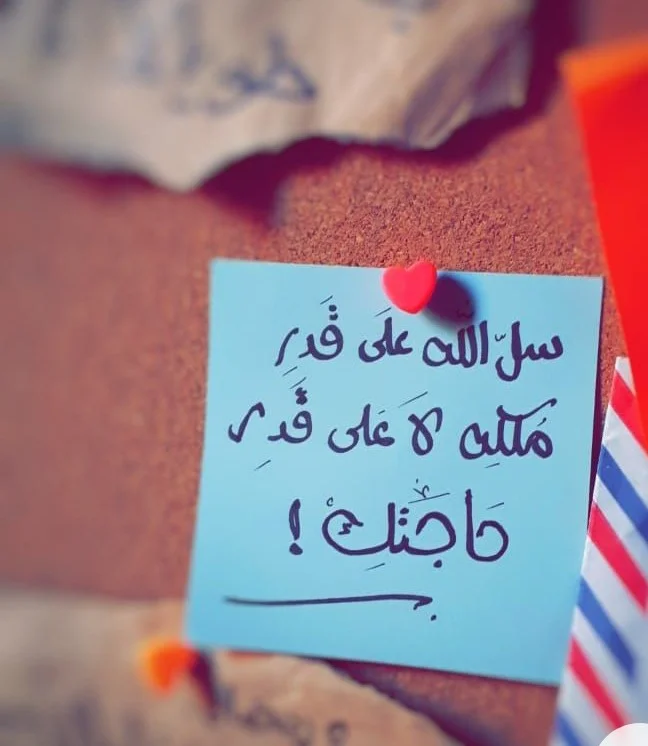 سلّ الله عَلَى قَدرِ
مُلكِه لَا عَلى قَدرِ
حَاجَتكِ !